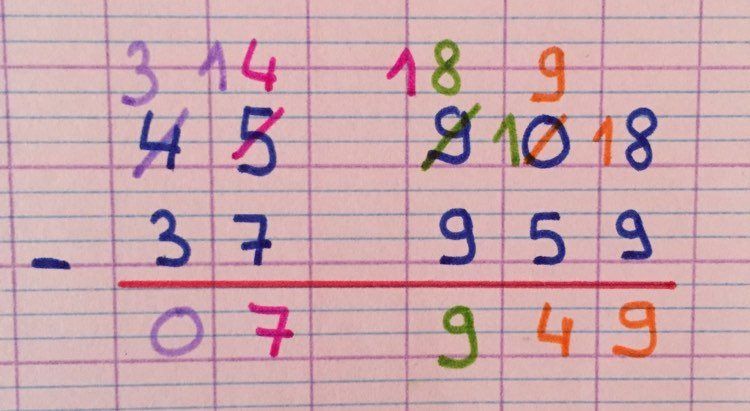 3 14 18 9
45 9 10 18
- 37 959
07 949